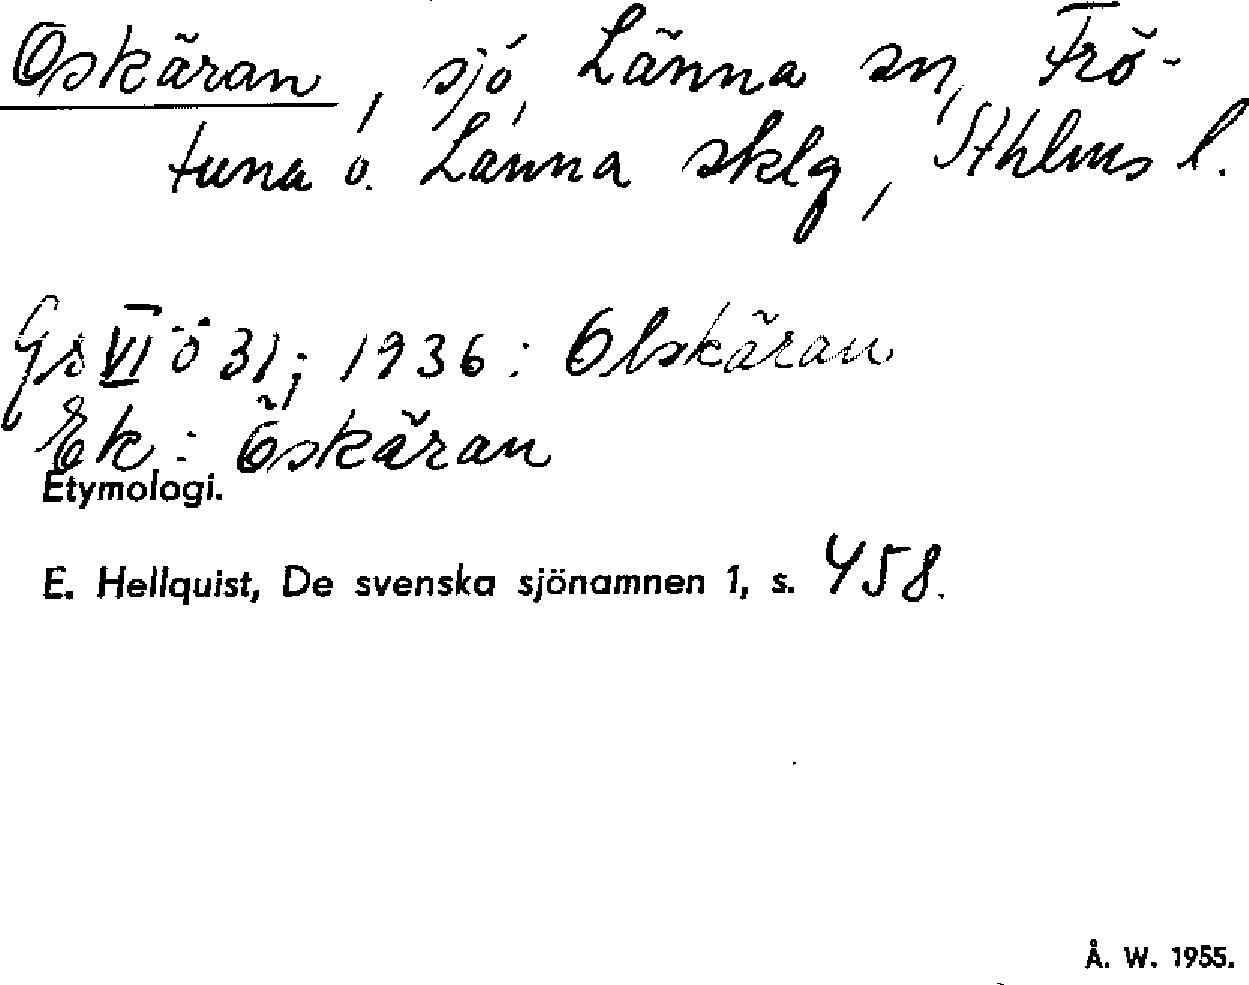 Oskäran, sjö, Länna sn, Frö-
tuna o. Länna sklg, Sthlms l.
Gs VI ö 31; 1936: Olskäran
Ek: Öskäran
Etymologi.
E. Hellquist, De svenska sjönamnen 1, s. 458.
Å. W. 1955.